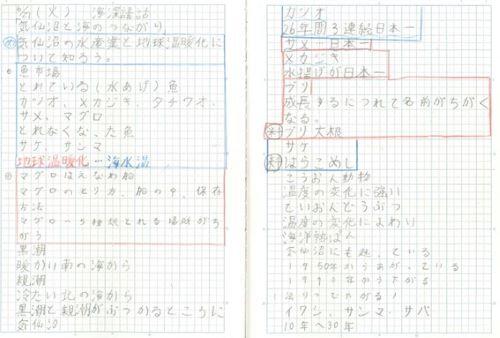 (火) 海洋講話
気仙沼と海のつながり
気仙沼の水産業と地球温暖化に
ついて知ろう。
魚市場
とれている(水あげ)魚
カツオ、メカジキ、タチウオ、
サメ、マグロ
とれなくなった魚
サケ、サンマ
地球温暖化…海水温
マグロはえなわ船
マグロのとりかた、船の中、保存
方法
マグロ→5種類とれる場所がち
がう
黒潮
暖かい南の海から
親潮
冷たい北の海から
黒潮と親潮がぶつかるところに
気仙沼
カツオ
26年間連続日本一
サメ…日本一
メカジキ
水揚げが日本一
ブリ
成長するにつれて名前がちがく
なる。
ブリ大根
サケ
はらこめし
こうおん動物
温度の変化に強い
へいおんどうぶつ
温度の変化によわい
気仙沼にも起っている
1950年から
イワシ、サンマ、サバ
10年〜30年